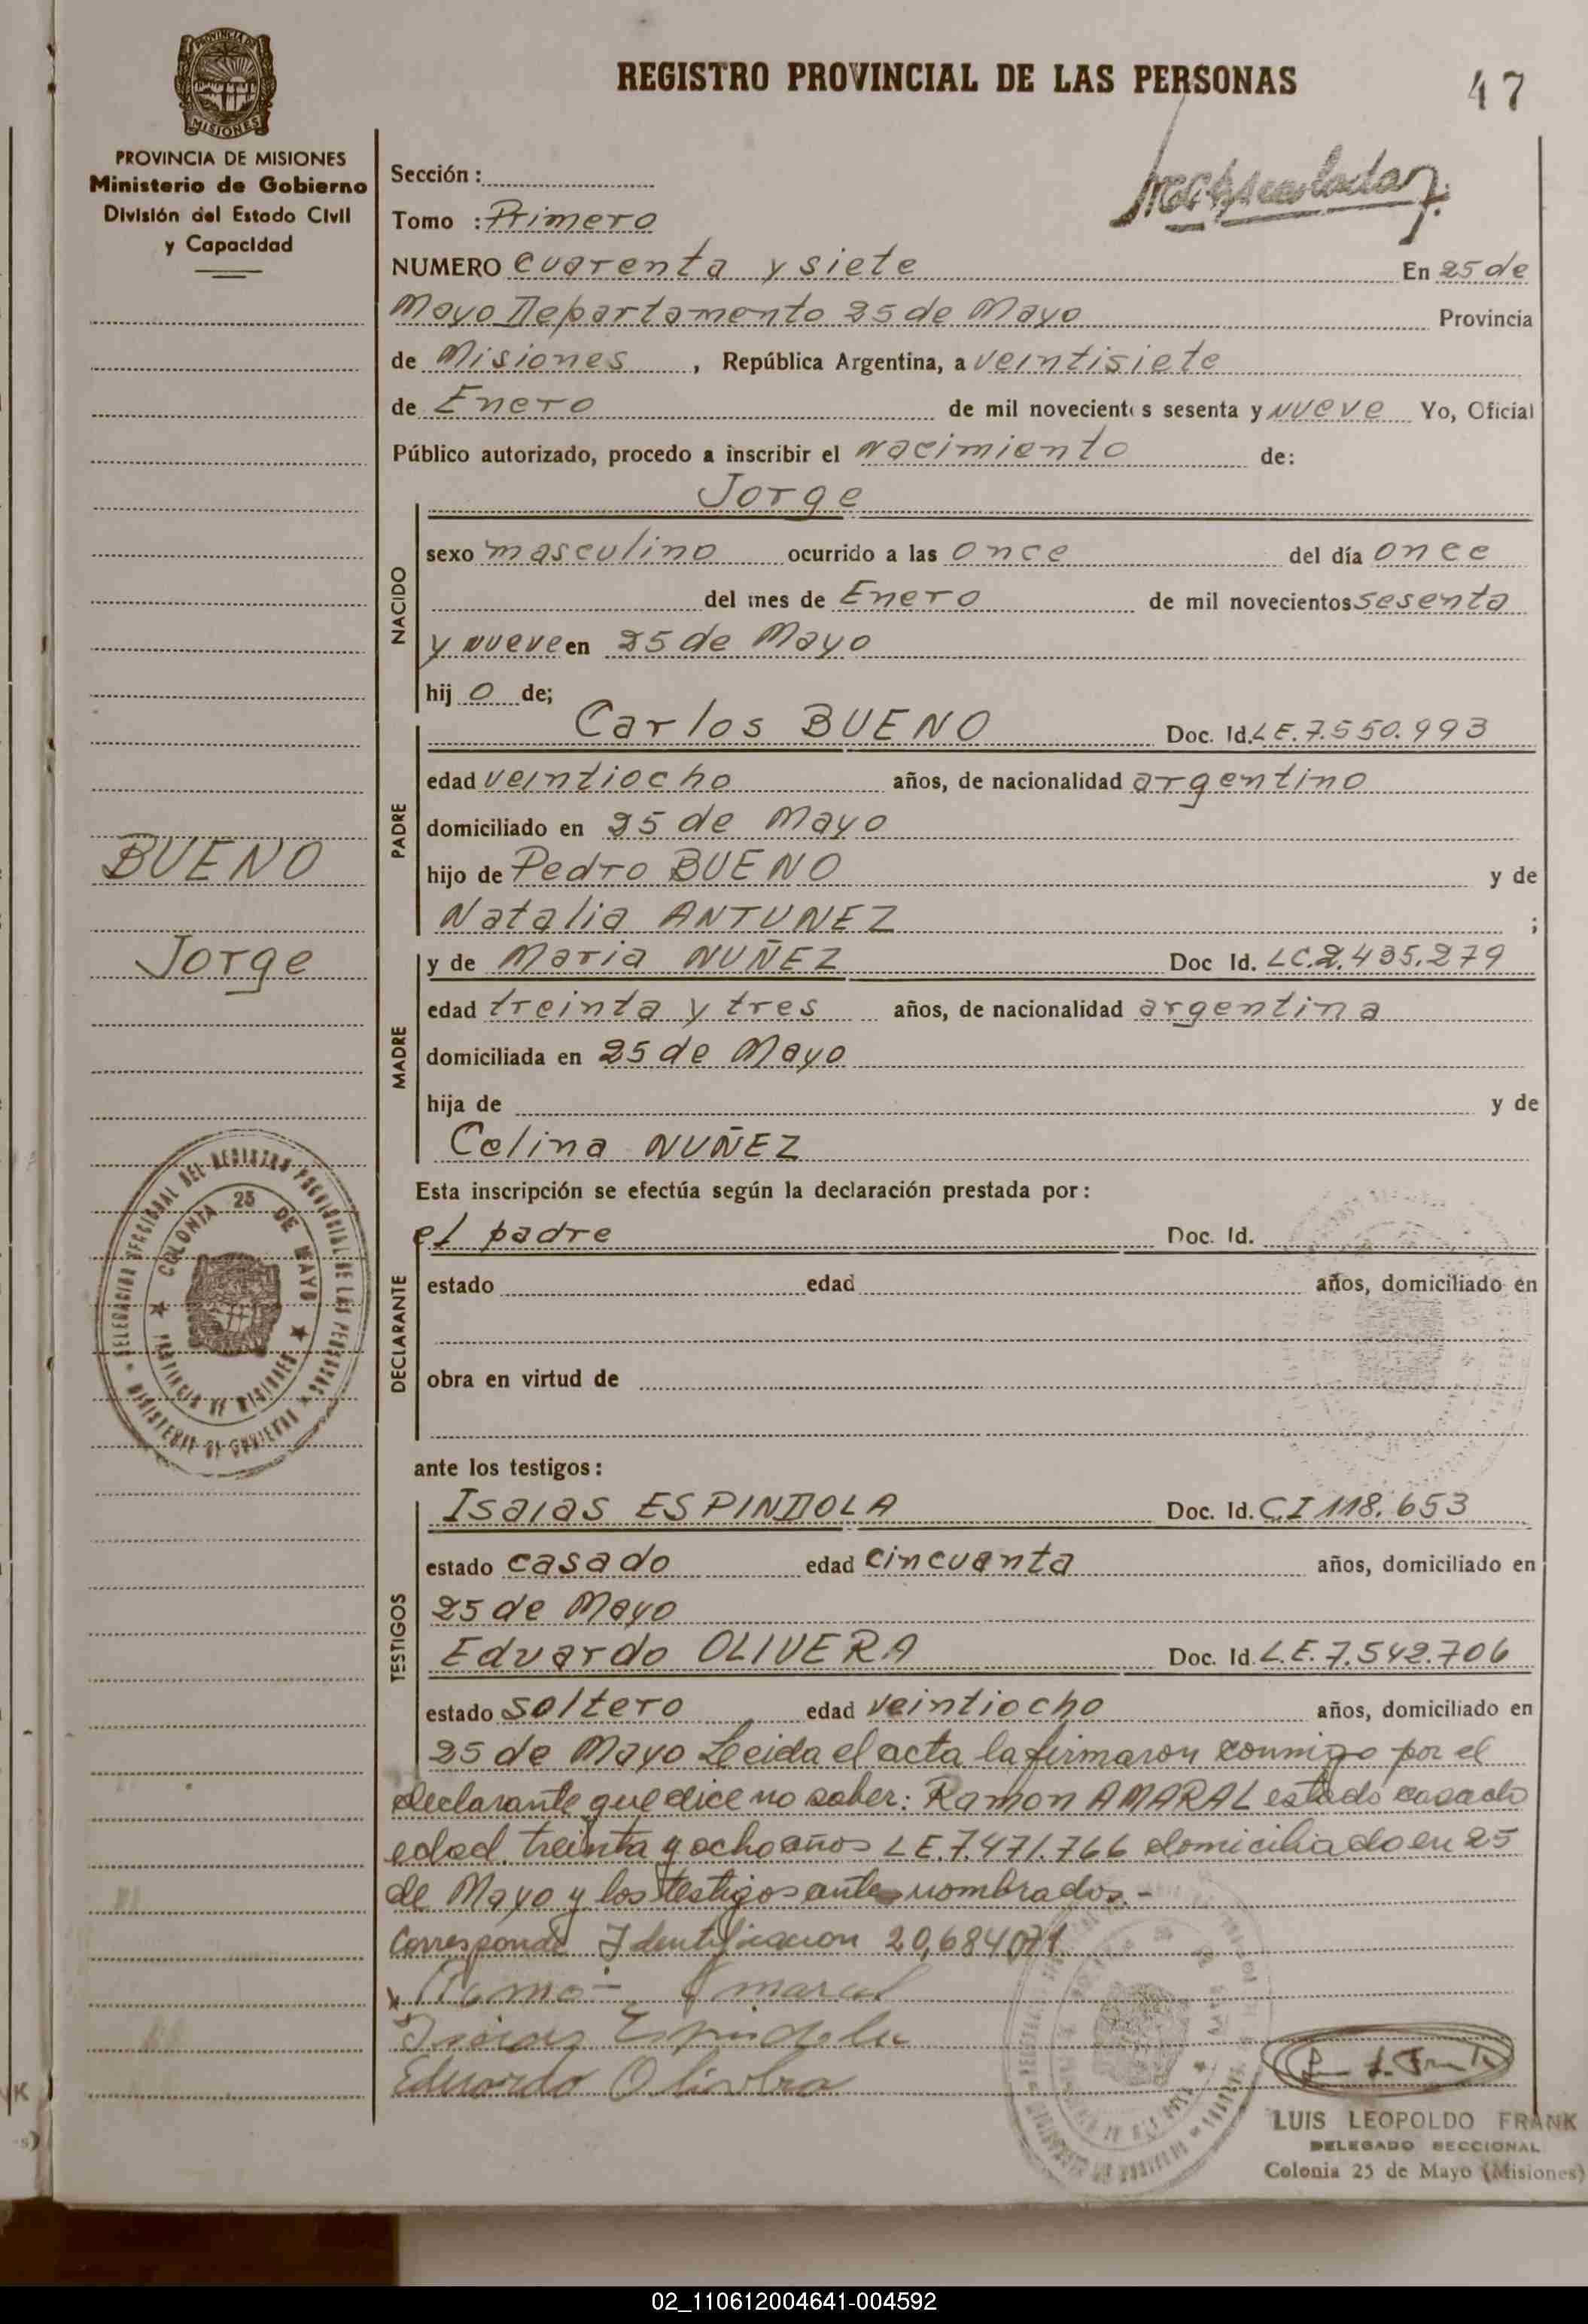 REGISTRO PROVINCIAL DE LAS PERSONAS
47
PROVINCIA DE MISIONES
MISIONES
PROVINCIA DE MISIONES
Ministerio de Gobierno
División del Estado Civil
y Capacidad
Sección :
Tomo : Primero
NUMERO cuarenta y siete En 25 de
Mayo Departamento 25 de Mayo Provincia
de Misiones , República Argentina, a veintisiete
de Enero de mil novecientos sesenta y nueve Yo, Oficial
Público autorizado, procedo a inscribir el nacimiento de:
NACIDO
Jorge
sexo masculino ocurrido a las once del día once
del mes de Enero de mil novecientos sesenta
y nueve en 25 de Mayo
hij o de;
PADRE
Carlos BUENO Doc. Id. L E. 7.550.993
edad veintiocho años, de nacionalidad argentino
domiciliado en 25 de Mayo
hijo de Pedro BUENO y de
Natalia ANTUNEZ ;
BUENO
Jorge
MADRE
y de Maria NUÑEZ Doc Id. LC.2.435.279
edad treinta y tres años, de nacionalidad argentina
domiciliada en 25 de Mayo
hija de y de
Celina NUÑEZ
Esta inscripción se efectúa según la declaración prestada por:
DECLARANTE
el padre Doc. Id.
estado edad años, domiciliado en
obra en virtud de
DELEGACION SECCIONAL DEL REGISTRO PROVINCIAL DE LAS PERSONAS
MINISTERIO DE GOBIERNO
COLONIA 25 DE MAYO
PROVINCIA DE MISIONES
ante los testigos:
TESTIGOS
Isaias ESPINDOLA Doc. Id. C.I 118.653
estado casado edad cincuanta años, domiciliado en
25 de Mayo
Eduardo OLIVERA Doc. Id. L.E. 7.542.706
estado soltero edad veintiocho años, domiciliado en
25 de Mayo Leida el acta la firmaron conmigo por el
declarante que dice no saber: Ramon AMARAL estado casado
edad treinta y ocho años L E. 7.471.766 domiciliado en 25
de Mayo y los testigos antes nombrados.-
Corresponde Identificacion 20,684071
Ramon Amaral
Isaias Espindola
Eduardo Olivera
LUIS LEOPOLDO FRANK
DELEGADO SECCIONAL
Colonia 25 de Mayo (Misiones)
02_110612004641-004592